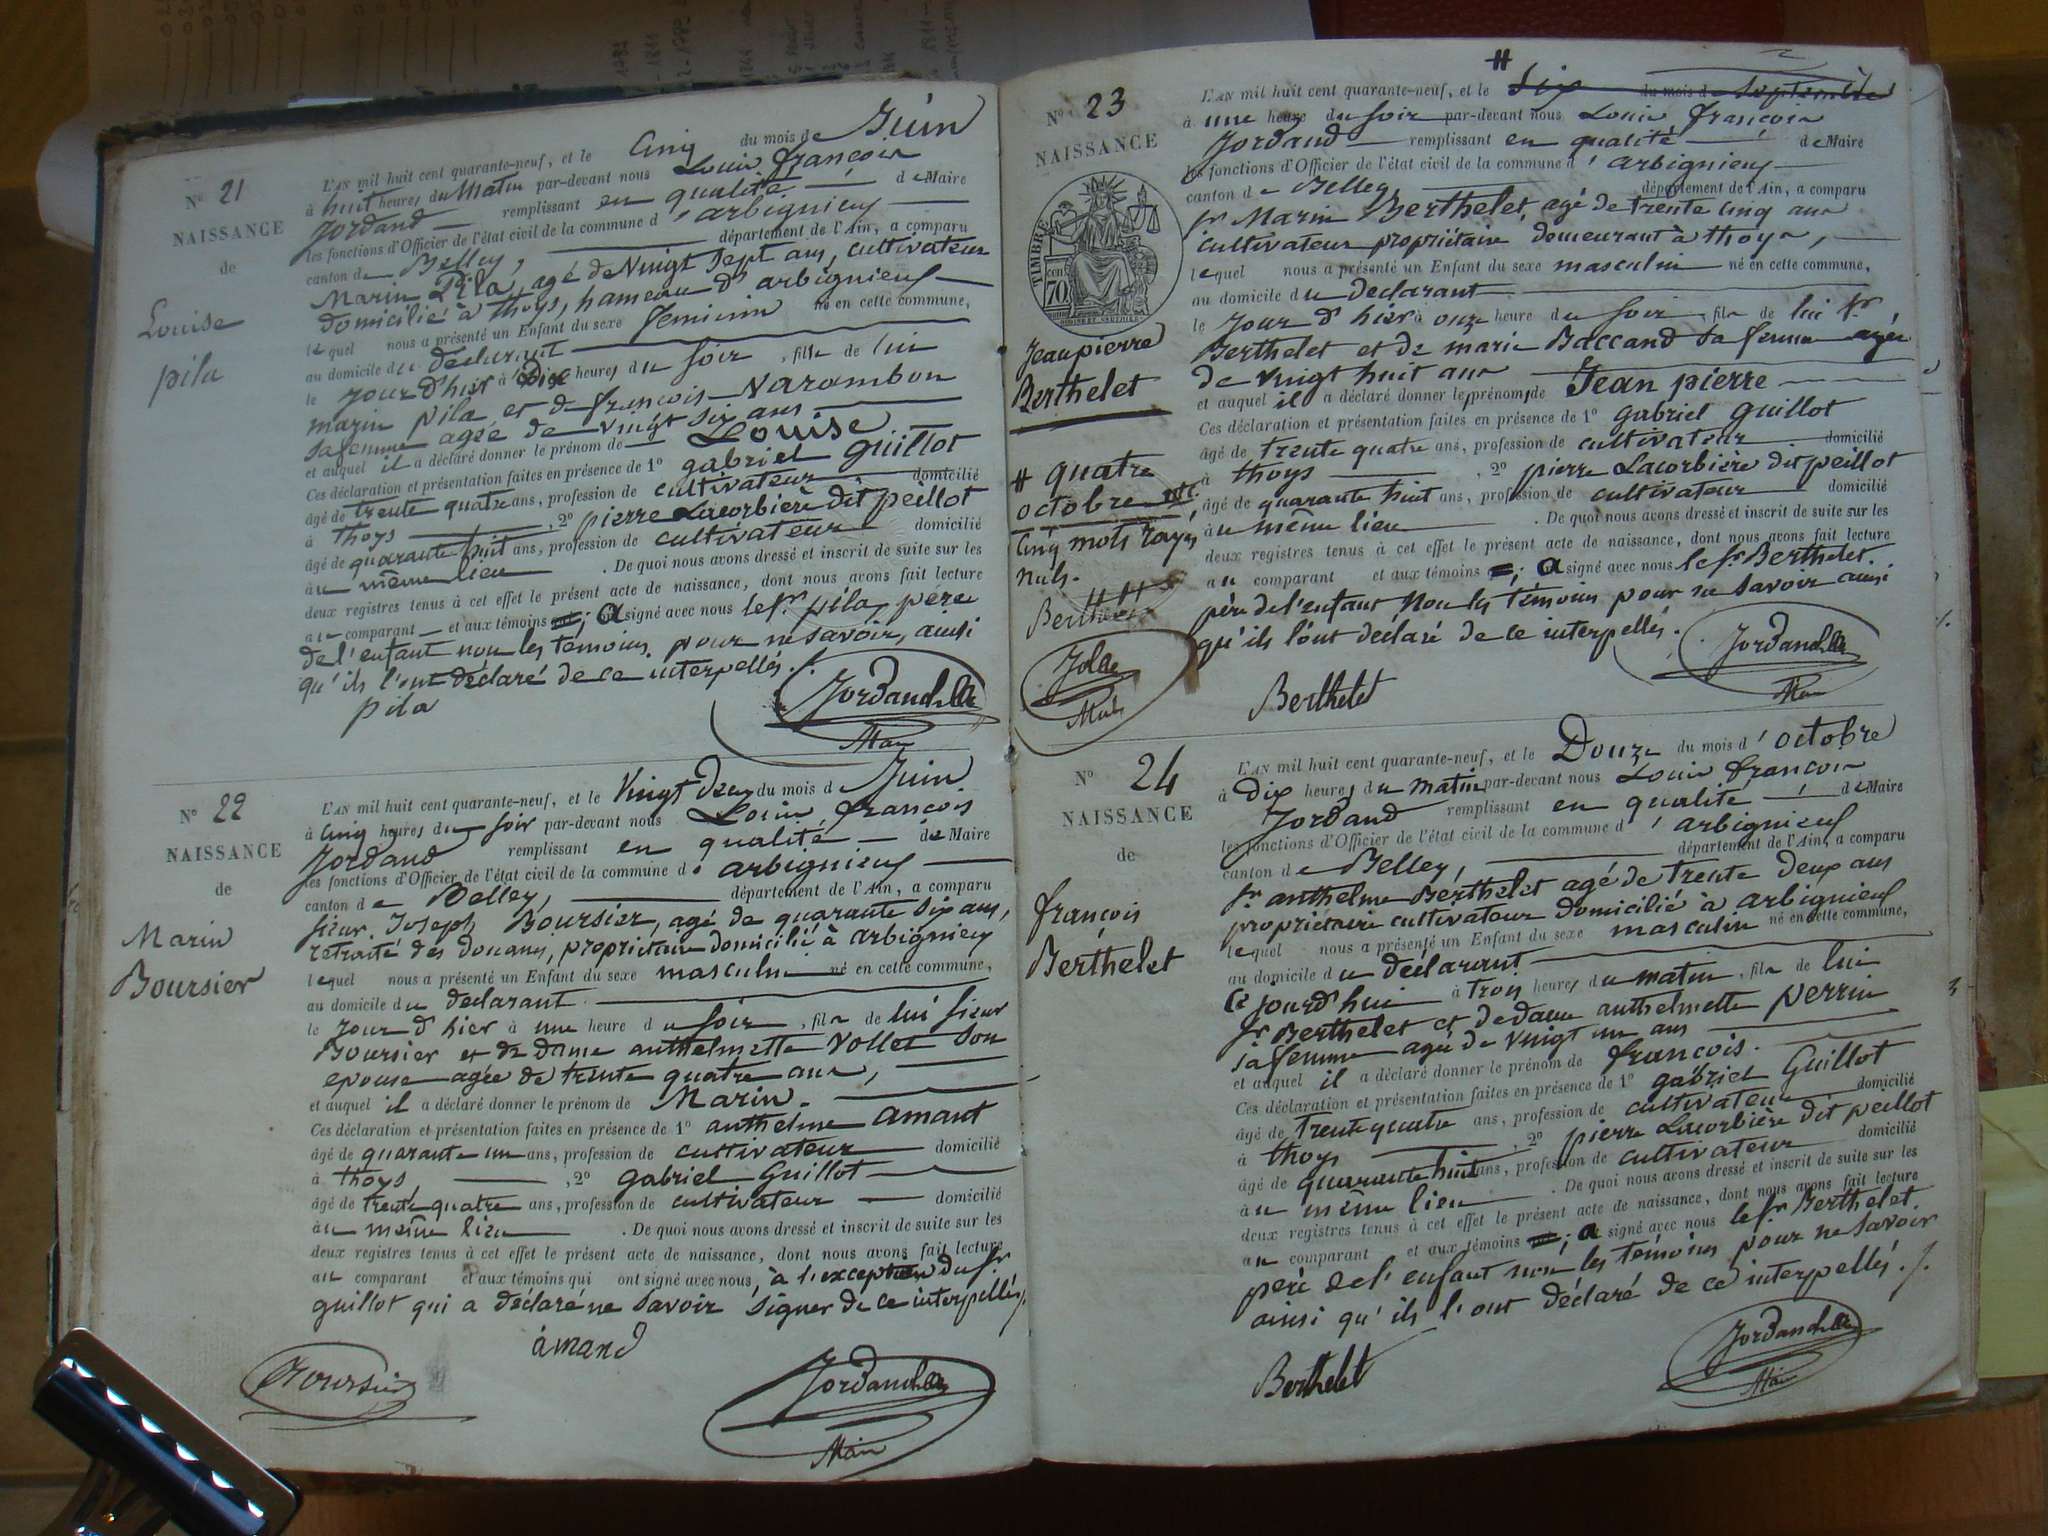 N° 21
NAISSANCE
de
Louise
pila
L'AN mil huit cent quarante-neuf, et le Cinq du mois de Juin
à huit heures du Matin par-devant nous Louis françois
Jordand remplissant en qualité de Maire
les fonctions d'Officier de l'état civil de la commune d'arbignieu
canton de Belley, département de l'Ain, a comparu
Marin Pila, agé de Vingt Sept ans, cultivateur
domicilié à thoys, hameau d'arbignieu
lequel nous a présenté un Enfant du sexe feminin né en cette commune,
au domicile du declarant
le jour d'hier à Dix heures du soir, fille de lui
marin pila et de françois Varambon
sa femme agée de vingt six ans.
et auquel il a déclaré donner le prénom de Louise
Ces déclaration et présentation faites en présence de 1° gabriel guillot
âgé de trente quatre ans, profession de cultivateur domicilié
à thoys, 2° pierre Lacorbière dit peillot
âgé de quarante huit ans, profession de cultivateur domicilié
au même lieu. De quoi nous avons dressé et inscrit de suite sur les
deux registres tenus à cet effet le présent acte de naissance, dont nous avons fait lecture
au comparant et aux témoins ; a signé avec nous le sr. pila, père
de l'enfant non les témoins pour ne savoir, ainsi
qu'ils l'ont déclaré de ce interpellés.
pila
Jordand
Maire
N° 22
NAISSANCE
de
Marin
Boursier
L'AN mil huit cent quarante-neuf, et le Vingt deux du mois de Juin
à cinq heures du soir par-devant nous Louis, françois
Jordand remplissant en qualité de Maire
les fonctions d'Officier de l'état civil de la commune d'arbignieu
canton de Belley, département de l'Ain, a comparu
sieur Joseph Boursier, agé de quarante six ans,
retraité des douanes, propriétaire domicilié à arbignieu
lequel nous a présenté un Enfant du sexe masculin né en cette commune,
au domicile du declarant
le jour d'hier à une heure du soir, fils de lui sieur
Boursier et de dame anthelmette Vollet son
epouse agée de trente quatre ans,
et auquel il a déclaré donner le prénom de Marin.
Ces déclaration et présentation faites en présence de 1° anthelme amant
âgé de quarante un ans, profession de cultivateur domicilié
à thoys, 2° gabriel Guillot
âgé de trente quatre ans, profession de cultivateur domicilié
au même lieu. De quoi nous avons dressé et inscrit de suite sur les
deux registres tenus à cet effet le présent acte de naissance, dont nous avons fait lecture
au comparant et aux témoins qui ont signé avec nous, à l'exception du sr
guillot qui a déclaré ne savoir signer de ce interpellé.
amand
Boursier
Jordand
Maire
N° 23
NAISSANCE
TIMBRE
cen 70
Jean pierre
Berthelet
# quatre
octobre
Cinq mots rayés
nuls.
Berthelet
Maire
# L'AN mil huit cent quarante-neuf, et le Six du mois de Septembre
à une heure du soir par-devant nous Louis françois
Jordand remplissant en qualité de Maire
les fonctions d'Officier de l'état civil de la commune d'arbignieu
canton de Belley, département de l'Ain, a comparu
sr Marin Berthelet, agé de trente cinq ans
cultivateur propriétaire, demeurant à thoys,
lequel nous a présenté un Enfant du sexe masculin né en cette commune,
au domicile du declarant
le jour d'hier à onze heure du soir, fils de lui sr.
Berthelet et de marie Baccand sa femme agée
de vingt huit ans
et auquel il a déclaré donner le prénom de Jean pierre
Ces déclaration et présentation faites en présence de 1° gabriel guillot
âgé de trente quatre ans, profession de cultivateur domicilié
à thoys, 2° pierre Lacorbière dit peillot
âgé de quarante huit ans, profession de cultivateur domicilié
au même lieu. De quoi nous avons dressé et inscrit de suite sur les
deux registres tenus à cet effet le présent acte de naissance, dont nous avons fait lecture
au comparant et aux témoins ; a signé avec nous le sr. Berthelet.
père de l'enfant non les témoins pour ne savoir ainsi
qu'ils l'ont déclaré de ce interpellés.
Berthelet
Jordand
Maire
N° 24
NAISSANCE
de
françois
Berthelet
L'AN mil huit cent quarante-neuf, et le Douze du mois d'octobre
à dix heures du matin par-devant nous Louis françois
Jordand remplissant en qualité de Maire
les fonctions d'Officier de l'état civil de la commune d'arbignieu
canton de Belley, département de l'Ain, a comparu
sr anthelme Berthelet agé de trente deux ans
propriétaire cultivateur domicilié à arbignieu
lequel nous a présenté un Enfant du sexe masculin né en cette commune,
au domicile du déclarant
Ce jourd'hui à trois heures du matin, fils de lui
sr Berthelet et de dame anthelmette perrin
sa femme agée de vingt un ans
et auquel il a déclaré donner le prénom de françois.
Ces déclaration et présentation faites en présence de 1° gabriel Guillot
âgé de trente quatre ans, profession de cultivateur domicilié
à thoys, 2° pierre Lacorbière dit peillot
âgé de quarante huit ans, profession de cultivateur domicilié
au même lieu. De quoi nous avons dressé et inscrit de suite sur les
deux registres tenus à cet effet le présent acte de naissance, dont nous avons fait lecture
au comparant et aux témoins ; a signé avec nous le sr Berthelet
père de l'enfant non les témoins pour ne savoir
ainsi qu'ils l'ont déclaré de ce interpellés.
Berthelet
Jordand
Maire